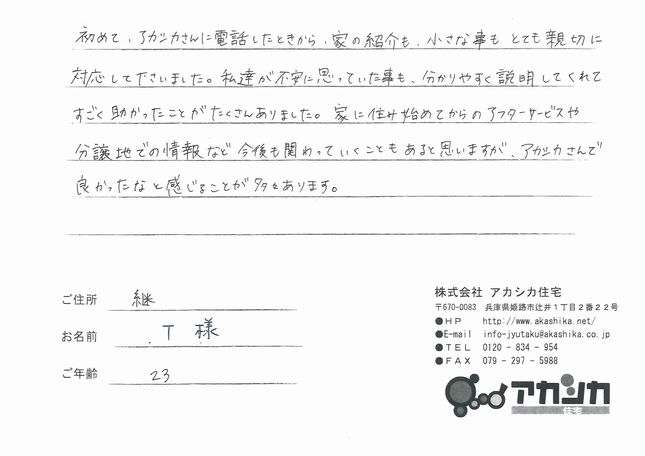 初めて、アカシカさんに電話したときから、家の紹介も、小さな事もとても親切に
対応して下さいました。私達が不安に思っていた事も、分かりやすく説明してくれて
すごく助かったことがたくさんありました。家に住み始めてからのアフターサービスや
分譲地での情報など今後も関わっていくこともあると思いますが、アカシカさんで
良かったなと感じることが多々あります。
ご住所 継
お名前 T 様
ご年齢 23
株式会社 アカシカ住宅
〒670-0083 兵庫県姫路市辻井1丁目2番22号
●HP http://www.akashika.net/
●E-mail info-jyutaku@akashika.co.jp
●TEL 0120-834-954
●FAX 079-297-5988
アカシカ
住宅